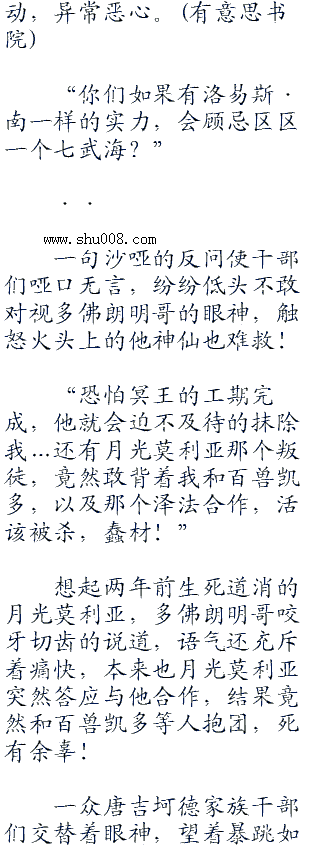 动，异常恶心。(有意思书
院)
“你们如果有洛易斯·
南一样的实力，会顾忌区区
一个七武海？”
· ·
www.shu008.com
一句沙哑的反问使干部
们哑口无言，纷纷低头不敢
对视多佛朗明哥的眼神，触
怒火头上的他神仙也难救！
“恐怕冥王的工期完
成，他就会迫不及待的抹除
我...还有月光莫利亚那个叛
徒，竟然敢背着我和百兽凯
多，以及那个泽法合作，活
该被杀，蠢材！”
想起两年前生死道消的
月光莫利亚，多佛朗明哥咬
牙切齿的说道，语气还充斥
着痛快，本来也月光莫利亚
突然答应与他合作，结果竟
然和百兽凯多等人抱团，死
有余辜！
一众唐吉坷德家族干部
们交替着眼神，望着暴跳如